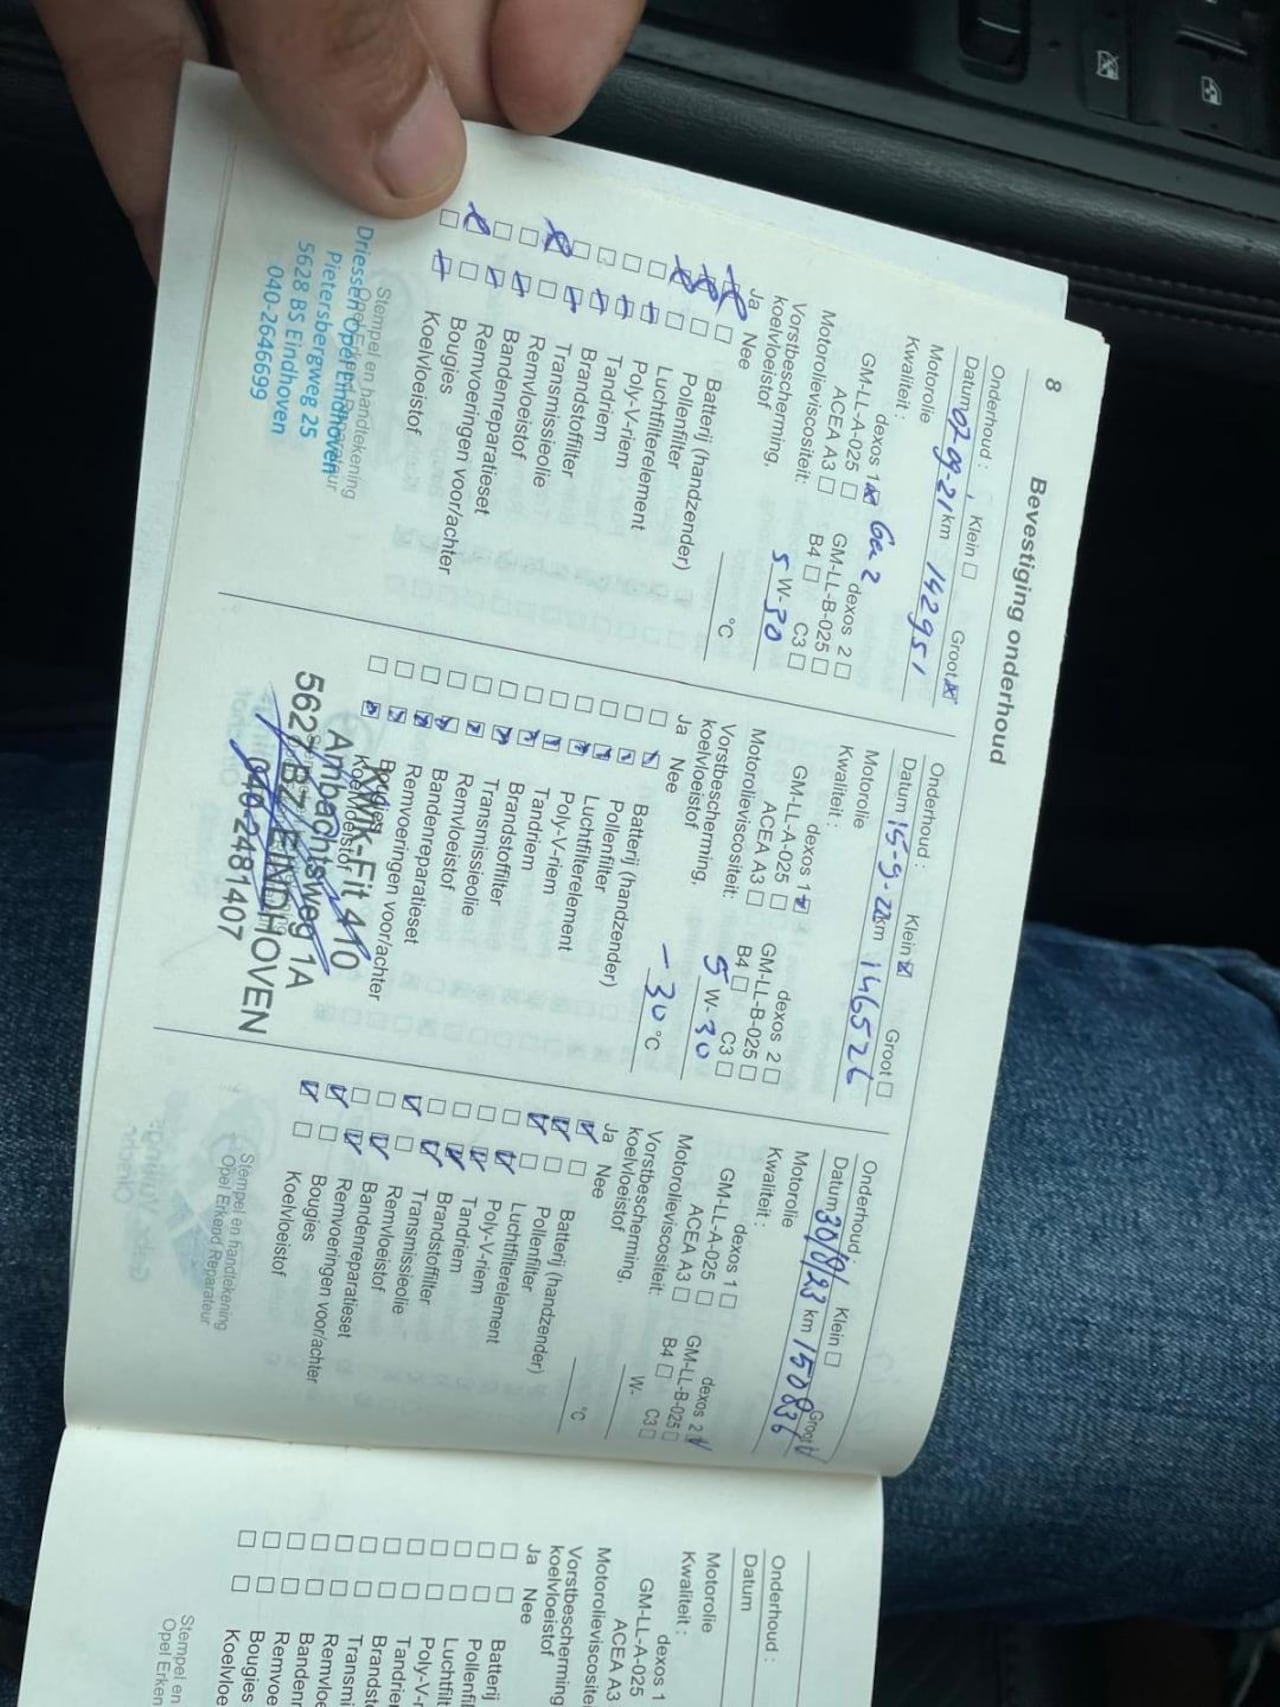 8 Bevestiging onderhoud
Onderhoud : Klein Groot
Datum 07-09-21 km 142951
Motorolie
Kwaliteit :
dexos 1 Gen 2 dexos 2
GM-LL-A-025 GM-LL-B-025
ACEA A3 B4 C3
Motorolieviscositeit: 5 W-30
Vorstbescherming,
koelvloeistof °C
Ja Nee
Batterij (handzender)
Pollenfilter
Luchtfilterelement
Poly-V-riem
Tandriem
Brandstoffilter
Transmissieolie
Remvloeistof
Bandenreparatieset
Remvoeringen voor/achter
Bougies
Koelvloeistof
Stempel en handtekening
Opel Erkend Reparateur
Driessen Opel Eindhoven
Pietersbergweg 25
5628 BS Eindhoven
040-2646699
Onderhoud : Klein Groot
Datum 15-9-22 km 146526
Motorolie
Kwaliteit :
dexos 1 dexos 2
GM-LL-A-025 GM-LL-B-025
ACEA A3 B4 C3
Motorolieviscositeit: 5 W-30
Vorstbescherming,
koelvloeistof -30 °C
Ja Nee
Batterij (handzender)
Pollenfilter
Luchtfilterelement
Poly-V-riem
Tandriem
Brandstoffilter
Transmissieolie
Remvloeistof
Bandenreparatieset
Remvoeringen voor/achter
Bougies
Koelvloeistof
Kwik-Fit 410
Ambachtsweg 1A
EINDHOVEN
040-2481407
Onderhoud : Klein Groot
Datum km 150836
Motorolie
Kwaliteit :
dexos 1 dexos 2
GM-LL-A-025 GM-LL-B-025
ACEA A3 B4 C3
Motorolieviscositeit: W-
Vorstbescherming,
koelvloeistof °C
Ja Nee
Batterij (handzender)
Pollenfilter
Luchtfilterelement
Poly-V-riem
Tandriem
Brandstoffilter
Transmissieolie
Remvloeistof
Bandenreparatieset
Remvoeringen voor/achter
Bougies
Koelvloeistof
Stempel en handtekening
Opel Erkend Reparateur
Onderhoud :
Datum
Motorolie
Kwaliteit :
dexos 1
GM-LL-A-025
ACEA A3
Motorolieviscosite
Vorstbescherming
koelvloeistof
Ja Nee
Batterij
Pollenfi
Luchtfilt
Poly-V-r
Tandrie
Brandst
Transmi
Remvlo
Banden
Remvoe
Bougies
Koelvloe
Stempel en
Opel Erken